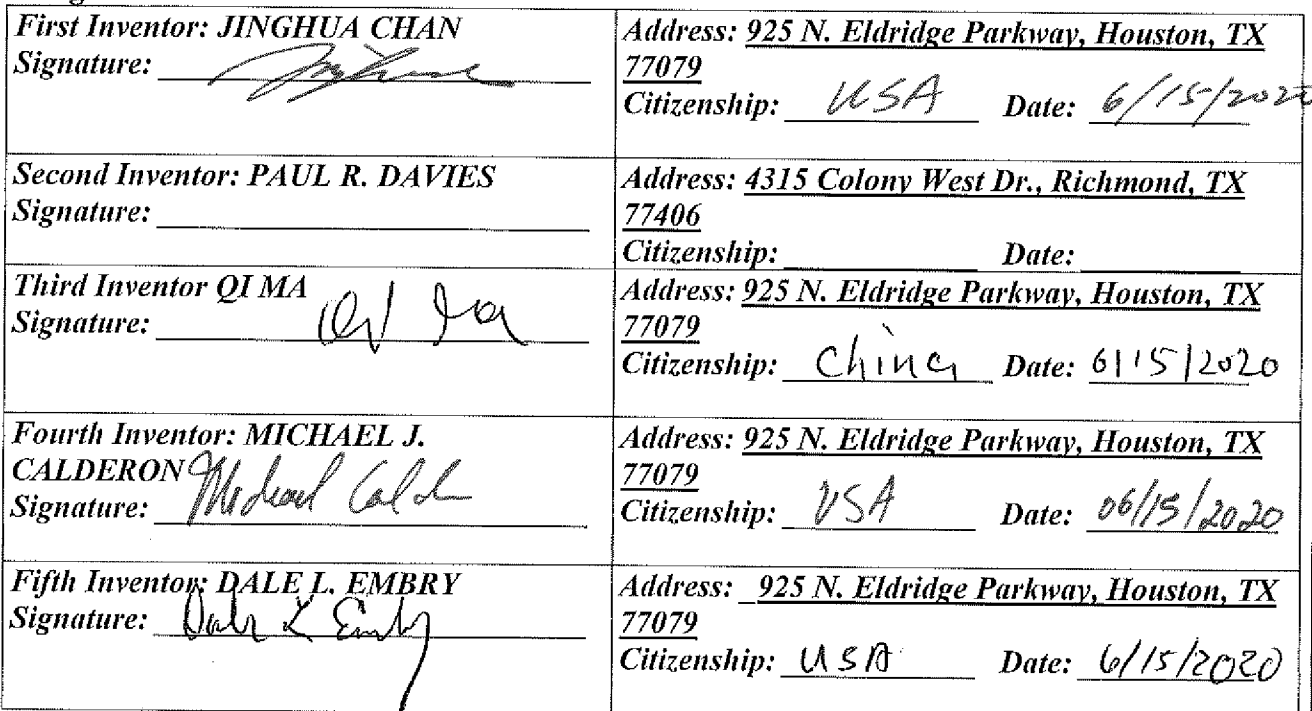 First Inventor: JINGHUA CHAN
Signature:
Address: 925 N. Eldridge Parkway, Houston, TX
77079
Citizenship: USA Date: 6/15/2020
Second Inventor: PAUL R. DAVIES
Signature:
Address: 4315 Colony West Dr., Richmond, TX
77406
Citizenship: Date:
Third Inventor QI MA
Signature: Qi Ma
Address: 925 N. Eldridge Parkway, Houston, TX
77079
Citizenship: China Date: 6/15/2020
Fourth Inventor: MICHAEL J.
CALDERON
Signature: Michael Cald
Address: 925 N. Eldridge Parkway, Houston, TX
77079
Citizenship: USA Date: 06/15/2020
Fifth Inventor: DALE L. EMBRY
Signature: Dale L Embry
Address: 925 N. Eldridge Parkway, Houston, TX
77079
Citizenship: USA Date: 6/15/2020